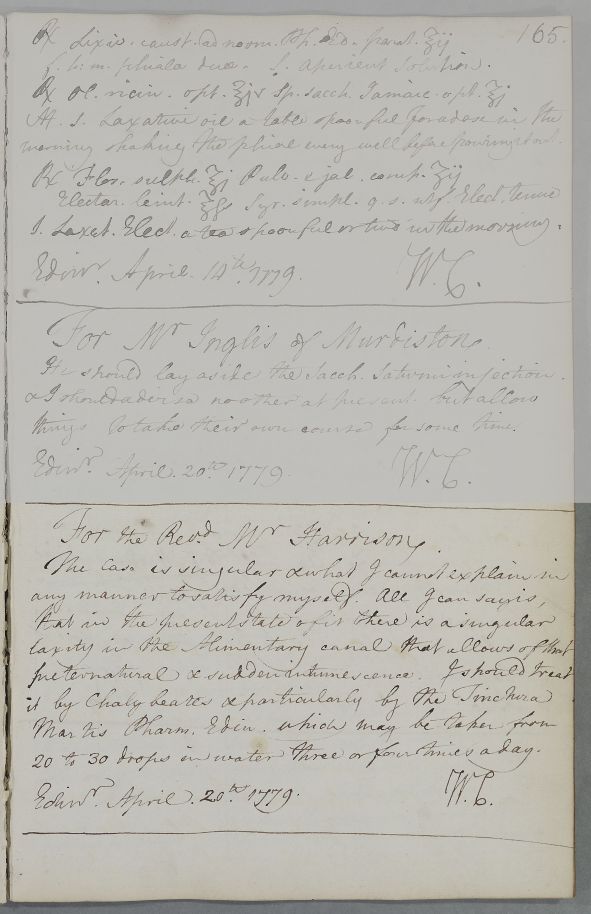 165.
℞ Lixiv. caust. ad norm. Ph. Ed. parat. ℥ij
f. h. m. phialæ duæ. S. Aperient Solution.
℞ Ol. ricin. opt. ℥js Sp. sacch. Jamaic. opt. ℥j
M. S. Laxative oil a table spoonful for a dose in the
morning shaking the phial every well before pouring out.
℞ Flor. sulph. ℥j Pulv. e jal. comp. ℥ij
Electar. lenit. ℥ſs Syr. simpl. q. s. ut f. Elect. tenue
S. Laxat. Elect. a tea spoonful or two in the morning.
Edinr. April. 14th. 1779. W.C.
For Mr Inglis of Murdiston.
He should lay aside the Sacch. Saturni injection.
& I should advise no other at present but allow
things to take their own course for some time.
Edinr. April. 20th 1779. W.C.
For the Revd. Mr Harrison.
The Case is singular & what I cannot explain in
any manner to satisfy myself. All I can say is,
that in the present state of it there is a singular
laxity in the Alimentary canal that allows of that
preternatural & sudden intumescence. I should treat
it by Chalybeates & particularly by the Tinctura
Martis Pharm. Edin. which may be taken from
20 to 30 drops in water three or four times a day.
Edinr. April. 20th. 1779. W.C.